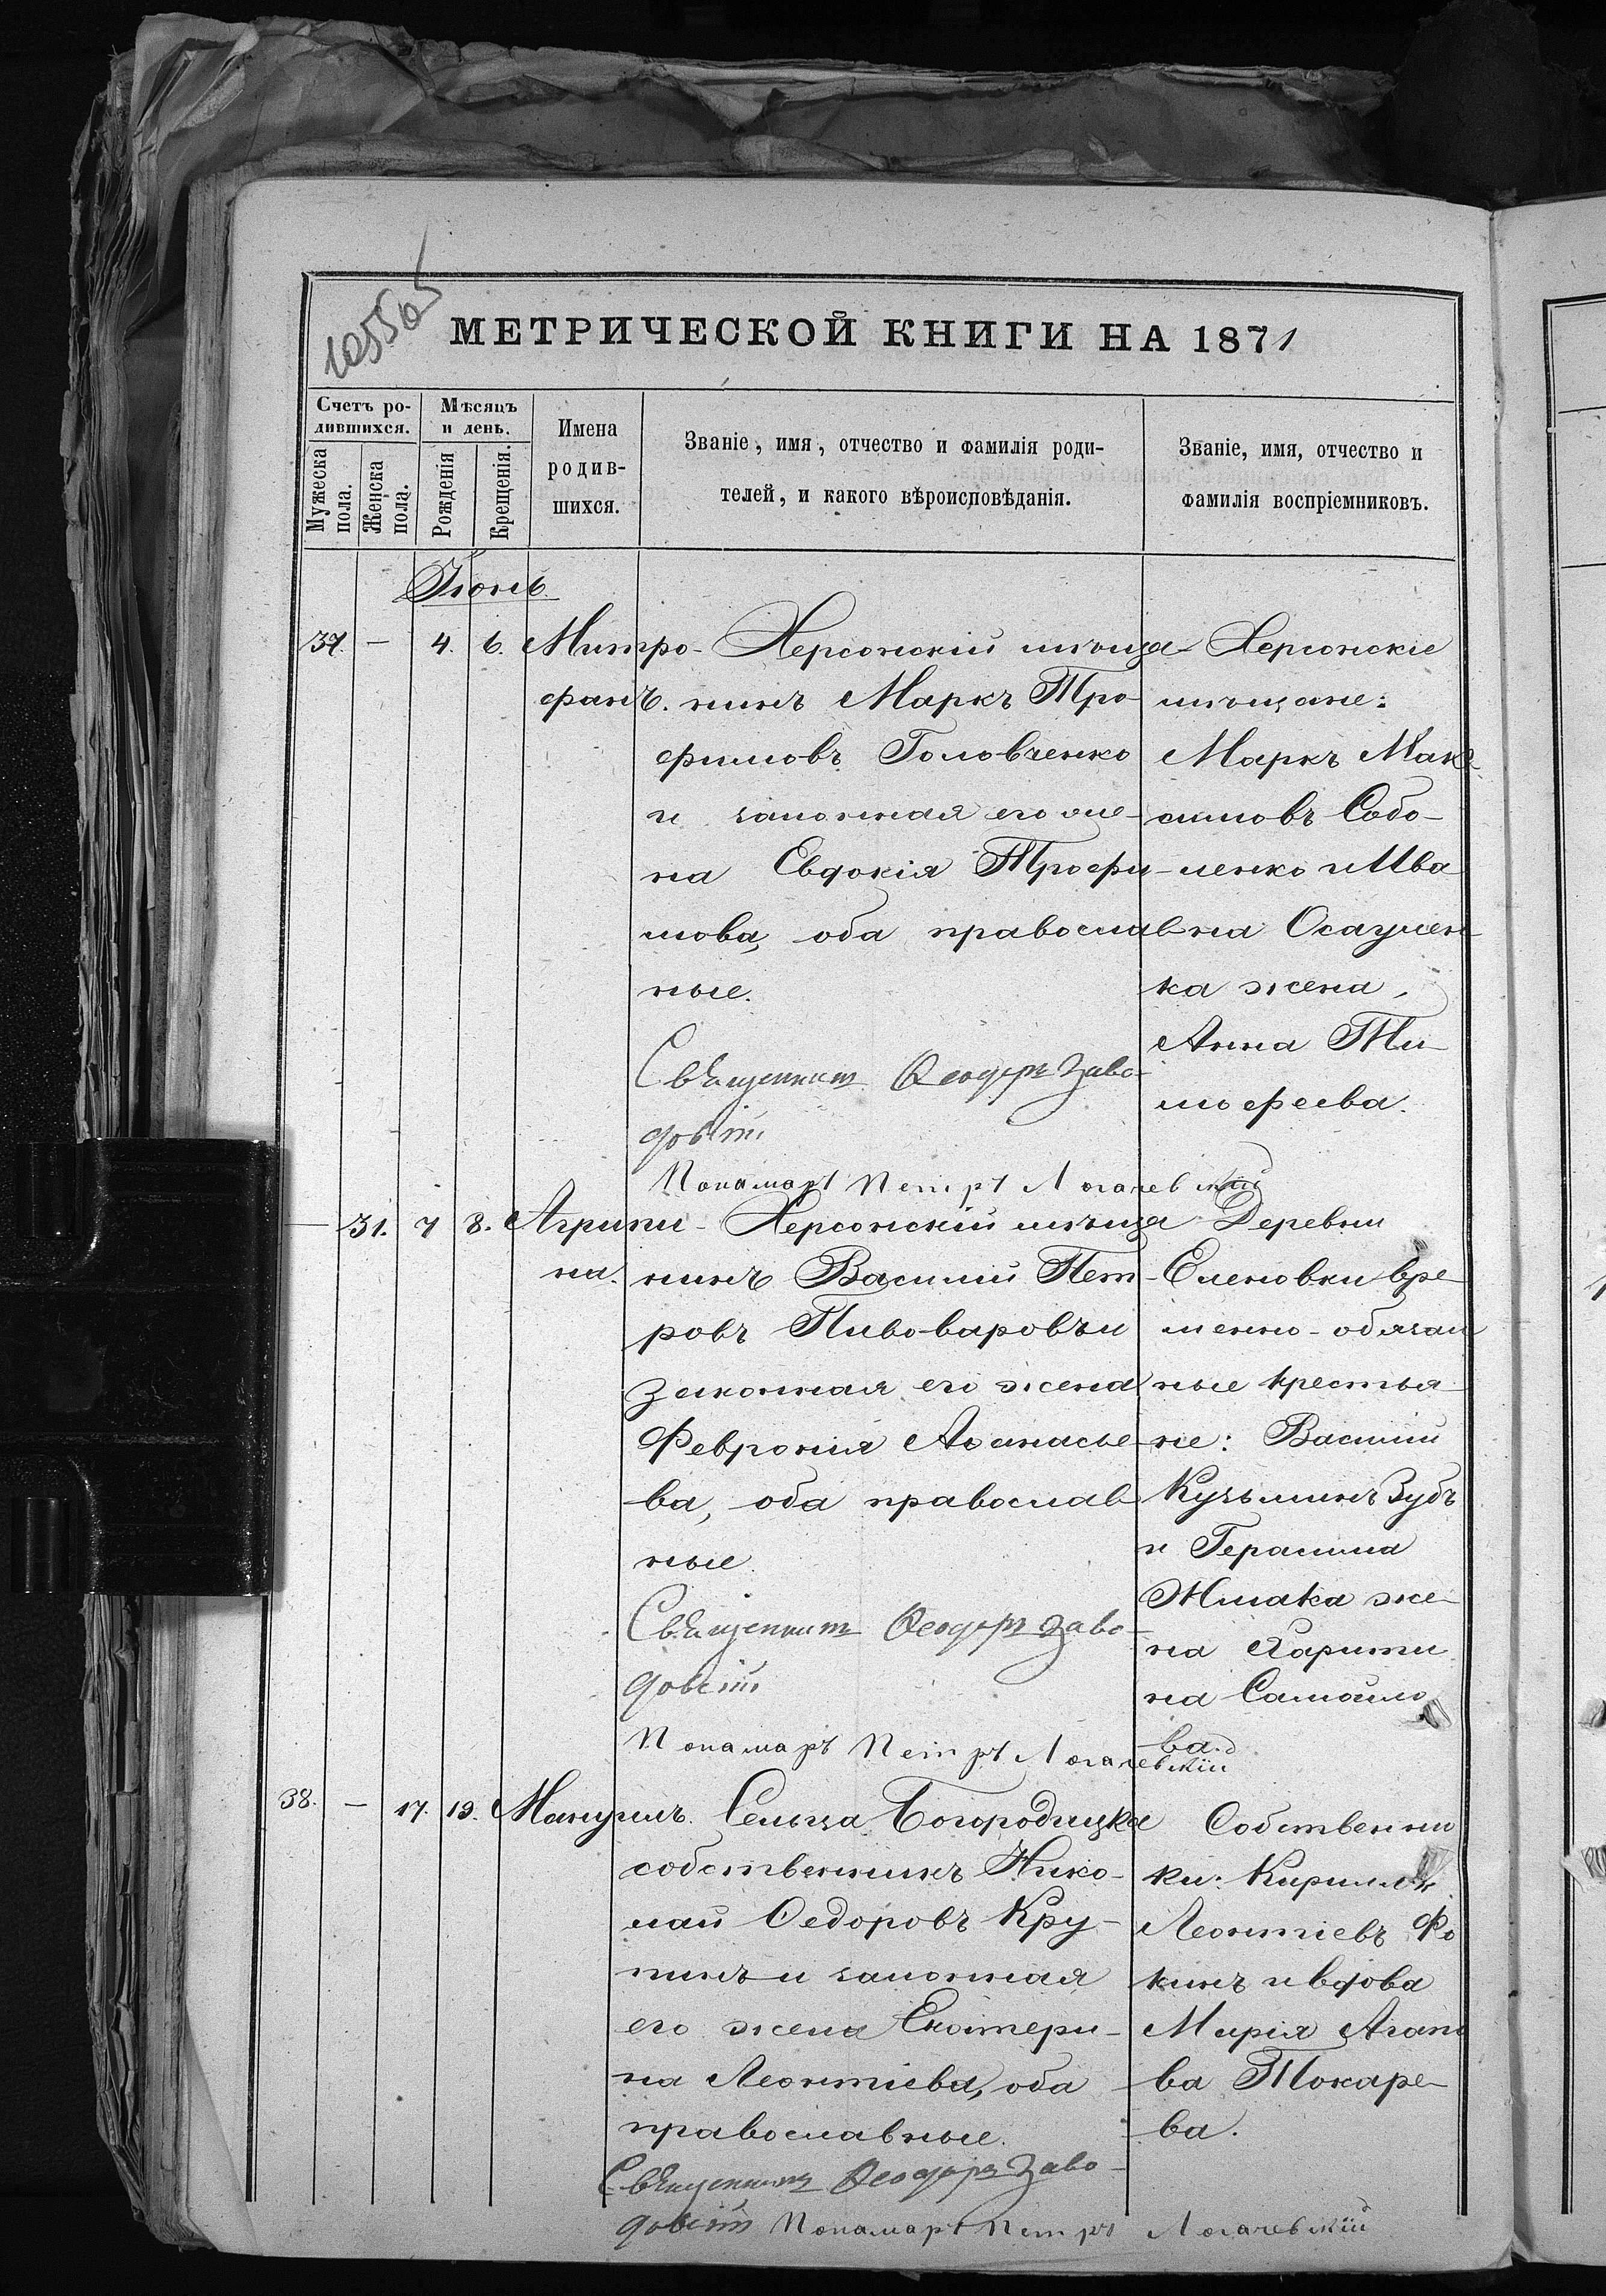 105505
МЕТРИЧЕСКОЙ КНИГИ НА 1871
Счетъ ро-
дившихся.
Мужеска
пола.
Женска
пола.
Мѣсяцъ
и день.
Рожденія
Крещенія.
Имена
родив-
шихся.
Званіе, имя, отчество и фамилія роди-
телей, и какого вѣроисповѣданія.
Званіе, имя, отчество и
фамилія воспріемниковъ.
Іюнь
37. — 4. 6. Митро-
фанъ.
Херсонскій мѣща-
нинъ Маркъ Тро-
фимовъ Головченко
и законная его же-
на Евдокія Трофи-
мова, оба православ-
ные.
Священникъ Ѳеодоръ Заво-
довскій
Понамарь Петръ Логачевскій
Херсонскіе
мѣщане:
Маркъ Мак-
симовъ Собо-
ленко и Ива
на Осаулен
ка жена,
Анна Ти-
мофеева.
— 31. 7 8. Агрипи-
на.
Херсонскій мѣща
нинъ Василий Пет-
ровъ Пивоваровъ и
законная его жена
Феврония Аѳанасье-
ва, оба православ
ные.
Священникъ Ѳеодоръ Заво-
довскій
Понамарь Петръ Логачевскій
Деревни
Еленовки вре-
менно-обязан
ные крестья-
не: Василий
Кузьминъ Зубъ
и Герасима
Жмака же-
на Харити
на Самойло
ва.
38. — 17. 19. Мануилъ.
Сельца Богородицка
собственникъ Нико-
лай Ѳедоровъ Кру-
пинъ и законная
его жена Екатери-
на Леонтіева, оба
православные.
Священникъ Ѳеодоръ Заво-
довскій Понамарь Петръ Логачевскій
Собственни
ки: Кириллъ
Леонтіевъ Фо
кинъ и вдова
Марія Агапо
ва Токаре-
ва.